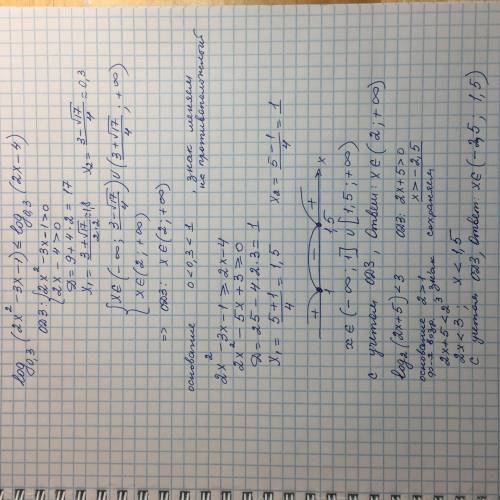 log₀,₃ (2x² - 3x - 1) ≤ log₀,₃ (2x - 4)
ОДЗ: { 2x² - 3x - 1 > 0
2x - 4 > 0
D = 9 + 4·2 = 17
x₁ = (3 + √17)/(2·2) = 1,8 x₂ = (3 - √17)/4 = 0,3
{ x ∈ (-∞; (3 - √17)/4) ∪ ((3 + √17)/4; +∞)
x ∈ (2; +∞)
=> ОДЗ: x ∈ (2; +∞)
основание 0 < 0,3 < 1 знак меняем на противоположный
2x² - 3x - 1 ≥ 2x - 4
2x² - 5x + 3 ≥ 0
D = 25 - 4·2·3 = 1
x₁ = (5 + 1)/4 = 1,5 x₂ = (5 - 1)/4 = 1
+ - +
1 1,5 x
x ∈ (-∞; 1] ∪ [1,5; +∞)
с учетом ОДЗ, Ответ: x ∈ (2; +∞)
log₂ (2x + 5) < 3 ОДЗ: 2x + 5 > 0
основание 2 > 1 x > -2,5
ф-я возр. знак сохраняем
2x + 5 < 2³
2x < 3; x < 1,5
с учетом ОДЗ, Ответ: x ∈ (-2,5; 1,5)